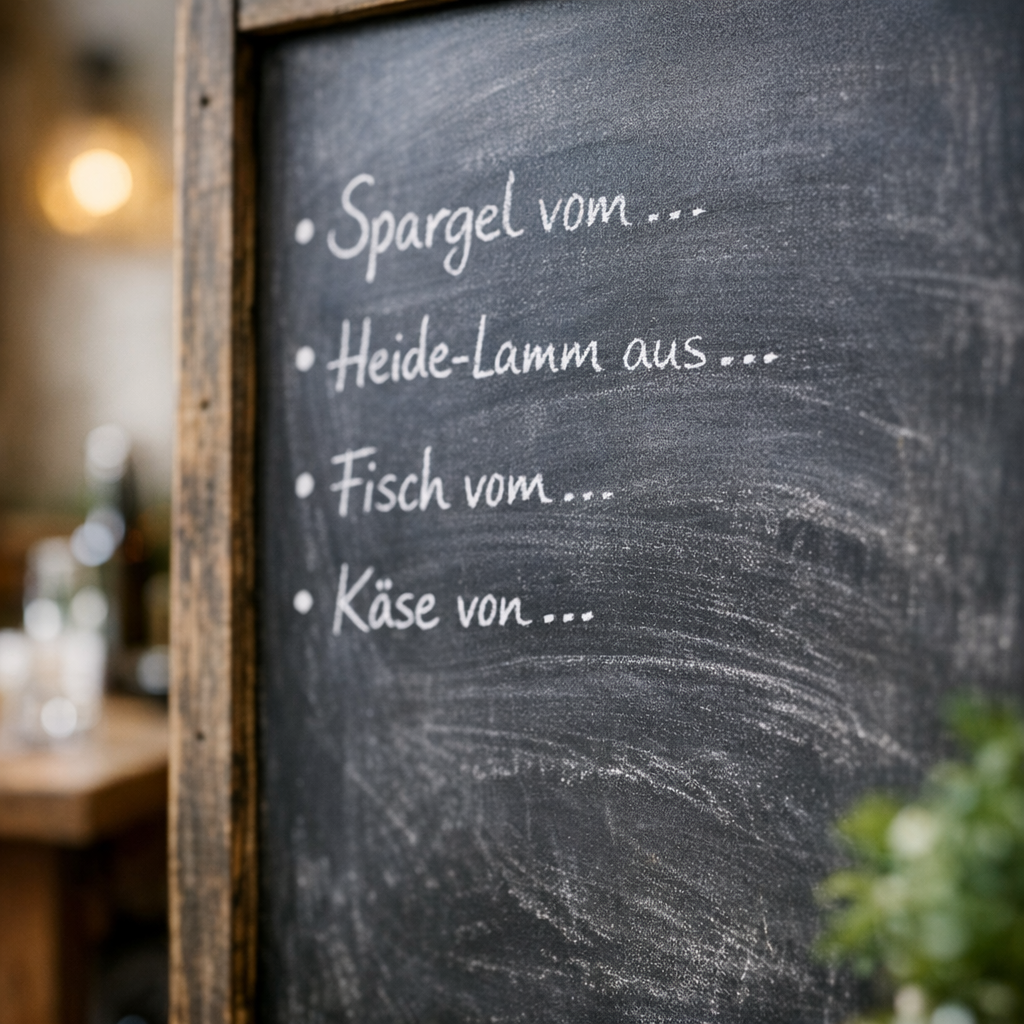 • Spargel vom...
• Heide-Lamm aus...
• Fisch vom...
• Käse von...